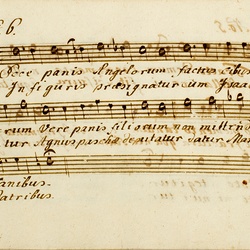 6.
Ecce panis Angelorum factus cibus
In figuris præsignatur cum Isaac
orum Vere panis filiorum non mittend
tur Agnus paschæ deputatur datur Man
canibus.
patribus.